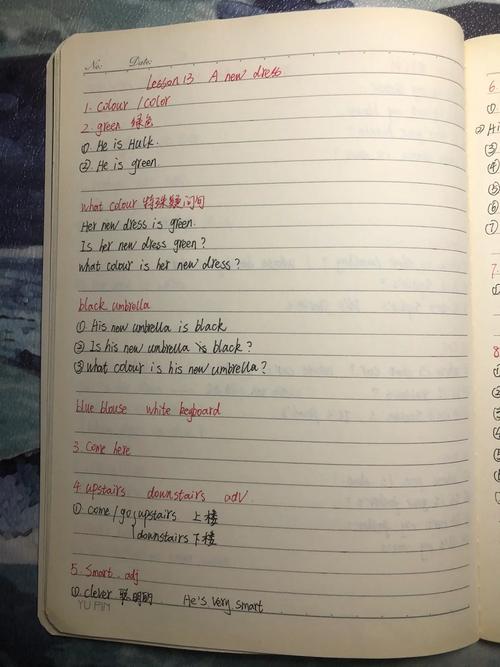 No: Date:
Lesson 13 A new dress
1. colour / color
2. green 绿色
① He is Hulk.
② He is green
what colour 特殊疑问句
Her new dress is green.
Is her new dress green?
what colour is her new dress?
black umbrella
① His new umbrella is black
② Is his new umbrella black?
③ what colour is his new umbrella?
blue blouse white keyboard
3 Come here
4 upstairs downstairs adv
① come / go upstairs 上楼
downstairs 下楼
5. Smart adj
① clever 聪明的 He's very smart
YU PIN
6
①
② Hi
③
④
⑤
⑥
⑦
7.
8